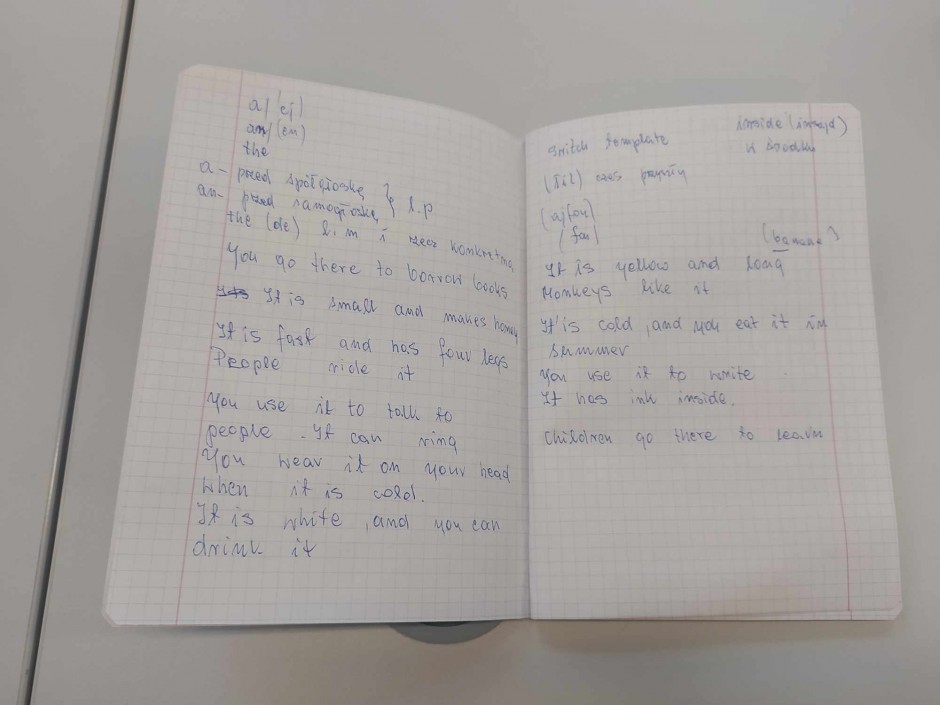 a/ (ej)
an/ (en)
the
a - przed spółgłoską } l.p
an - przed samogłoską
the (de) l.m i rzecz konkretna
You go there to borrow books
It is small and makes honey
It is fast and has four legs
People ride it
You use it to talk to
people . It can ring
You wear it on your head
when it is cold.
It is white , and you can
drink it
inside (insajd)
w środku
Switch template
(fil) czas
(ajfon)
(fon)
(banana)
It is yellow and long
Monkeys like it
It is cold , and you eat it in
summer
You use it to write
It has ink inside.
Children go there to learn